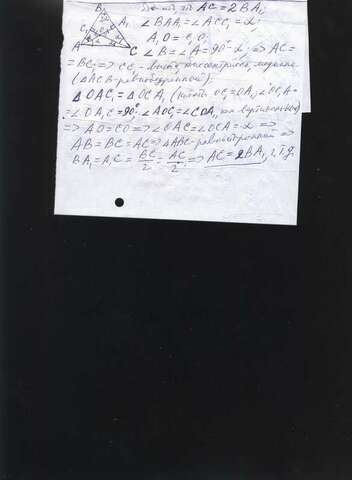 что AC = 2BA₁;
B
C₁
A₁
∠BAA₁ = ∠ACC₁ = α;
A₁O = C₁O
A
C
∠B = ∠A = 90° - α; ⇒ AC =
= BC; ⇒ CC₁ - высота, биссектриса, медиана
(ΔACB - равнобедренный).
ΔOAC₁ = ΔOCA₁ (OC₁ = OA₁, ∠OC₁A =
= ∠OA₁C = 90°; ∠AOC₁ = ∠COA₁, как вертикальные)
⇒ AO = CO ⇒ ∠OAC = ∠OCA = α ⇒
AB = BC = AC ⇒ ΔABC - равносторонний ⇒
BA₁ = A₁C = BC/2 = AC/2; ⇒ AC = 2BA₁, ч.т.д.